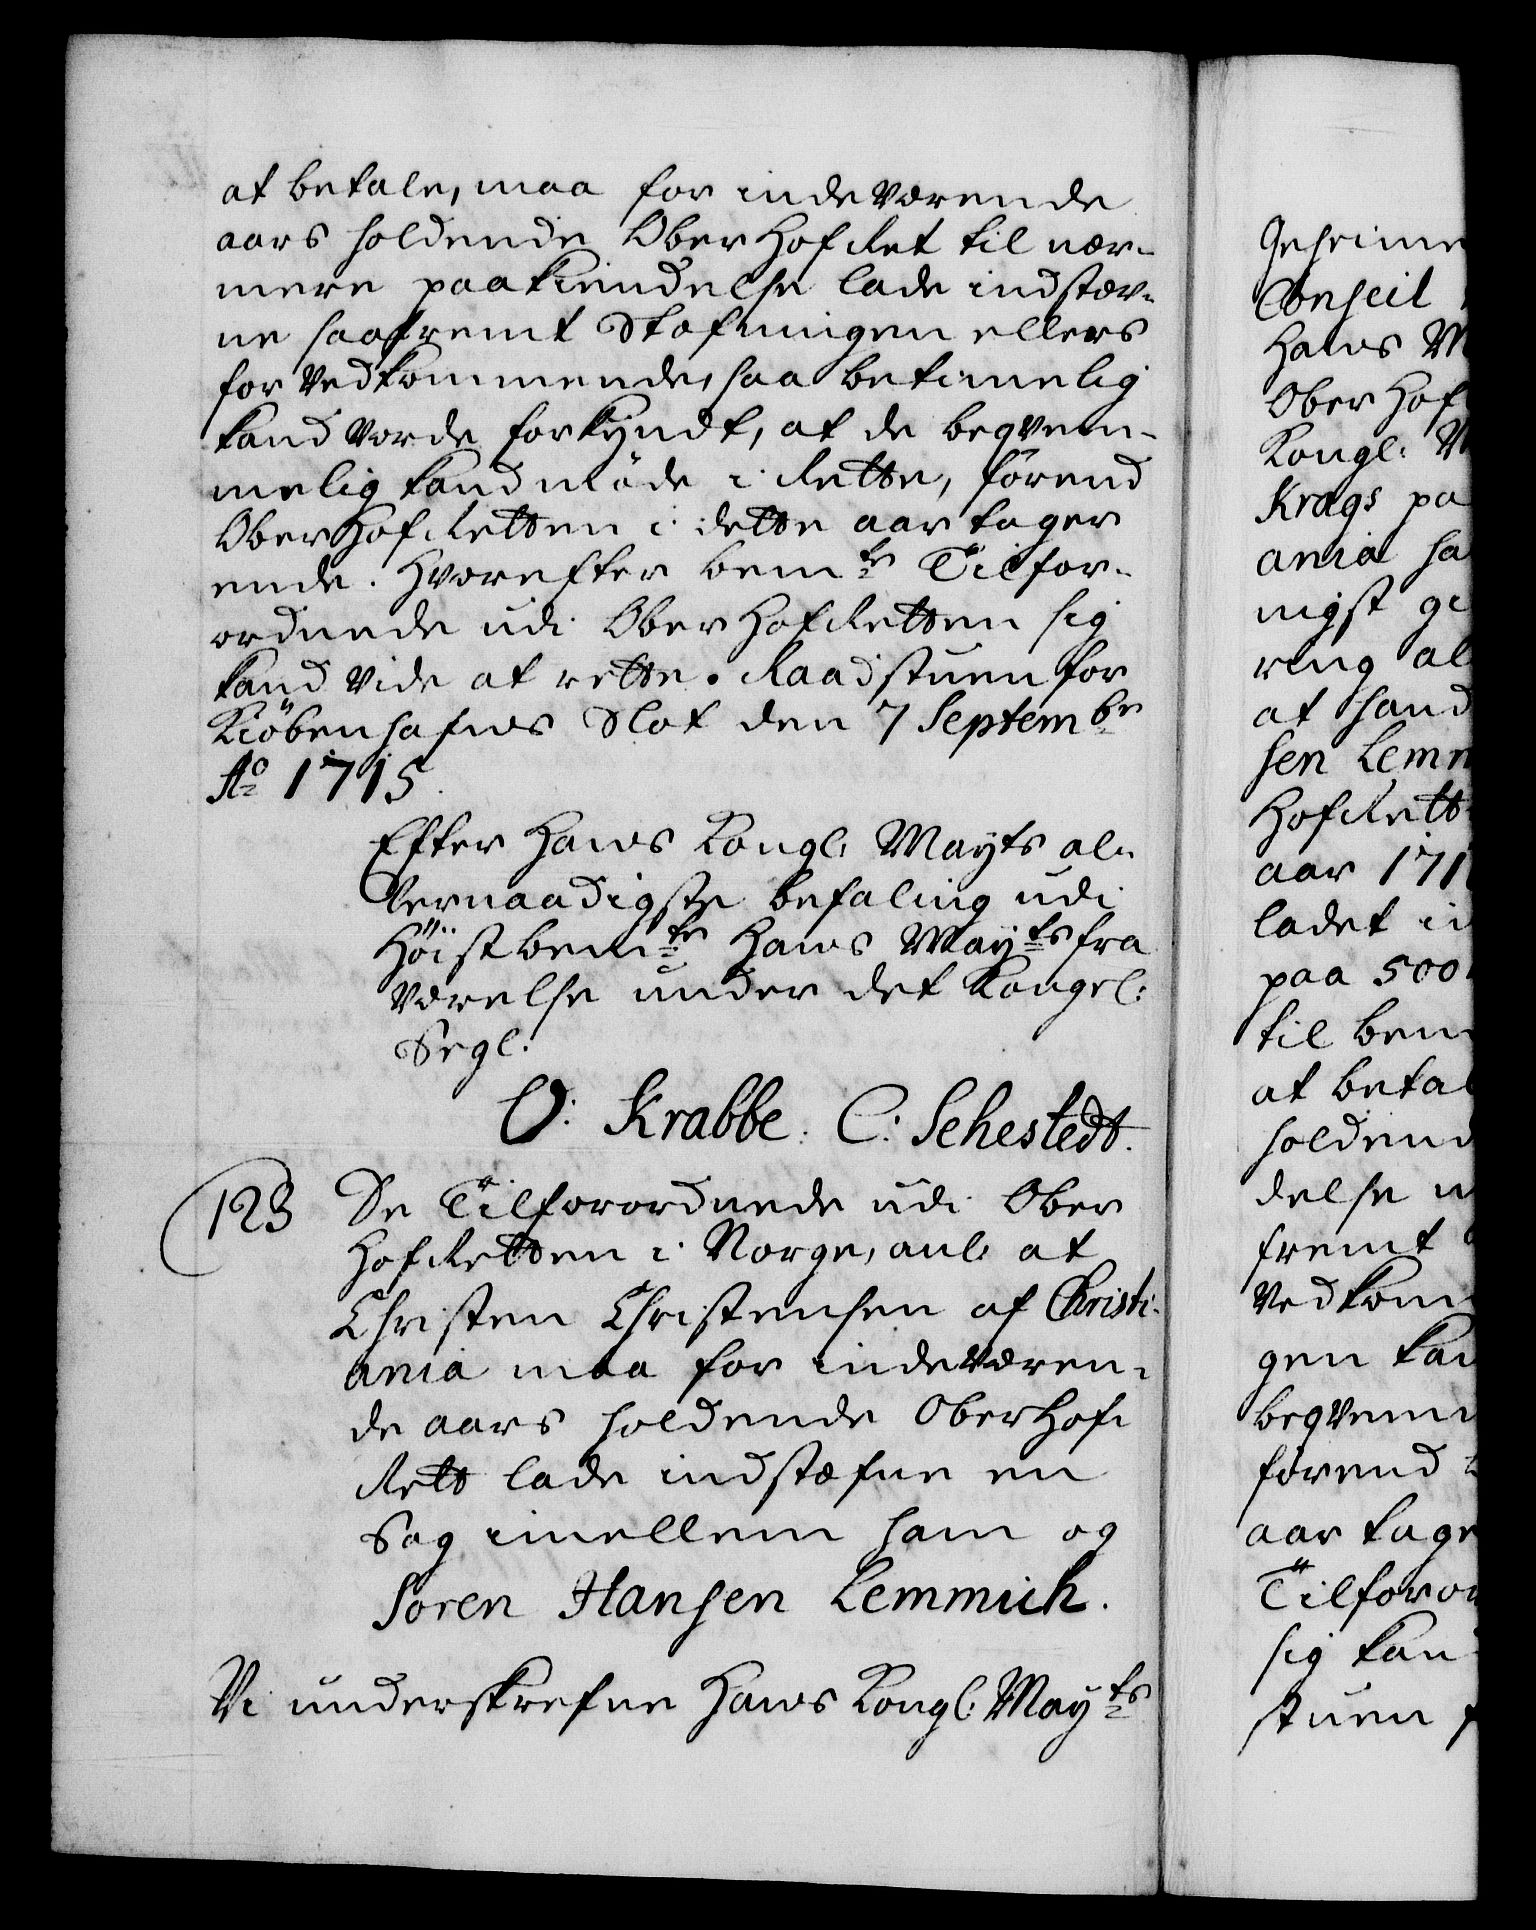 at betale, maa for indeværende
aars holdende Ober Hof Ret til nær-
mere paakiendelse lade indstæv-
ne saafremt Stefningen ellers
for Vedkommende, saa betimelig
kand vorde forkyndt, at de beqvem-
melig kand møde i Rette, förend
Ober Hof Retten i dette aar tager
ende. Hvorefter bem:te Tilfor-
ordnede udi Ober Hof Retten sig
kand vide at rette. Raadstuen for
Kiöbenhafns Slot den 7 Septembr
Ao 1715.
Efter Hans Kongl: Mayts al-
lernaadigste befaling udi
Höistbem:te Hans Mayts fra
værelse under det Kongel:
Segl.
O: Krabbe. C: Sehestedt.
123 De Tilforordnede udi Ober
Hof Retten i Norge, anl: at
Christen Christensen af Christi-
ania maa for indeværen-
de aars holdende Ober Hof
Rett lade indstæfne en
Sag imellem ham og
Soren Hansen Lemmich.
Vi underskrefne Hans Kongl: Mayts
Geheime
Conseil
Hans M
Ober Hof
Kongl: M
Krags pa
ania ha
nigst gi
ring al
at hand
sen Lemm
Hof Rett
aar 171
ladet in
paa 500
til bem
at betal
holdend
delse
fremt
Vedkom
gen kan
beqvem
førend
aar tage
Tilforor
sig kan
stuen f